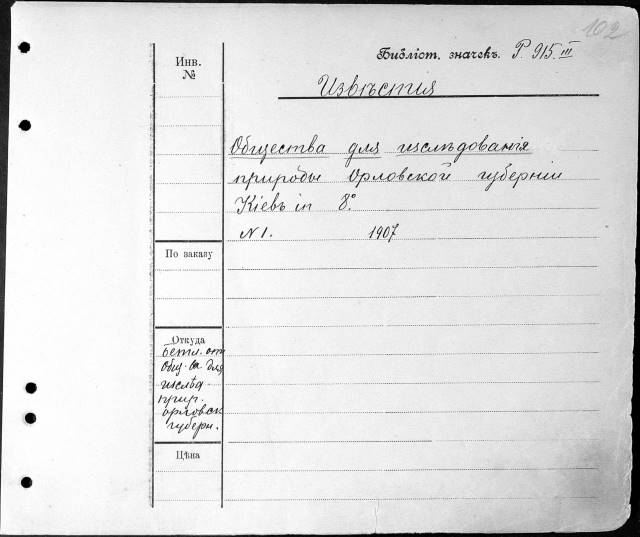 102
Инв.
№
Библіот. значекъ. P. 915. III
Извѣстия
Общества для изслѣдованія
природы Орловской губерніи
Кіевъ in 8°
N 1. 1907
По заказу
Откуда
от
Общ-ва для
изслѣд.
прир.
орловск
губерн.
Цѣна